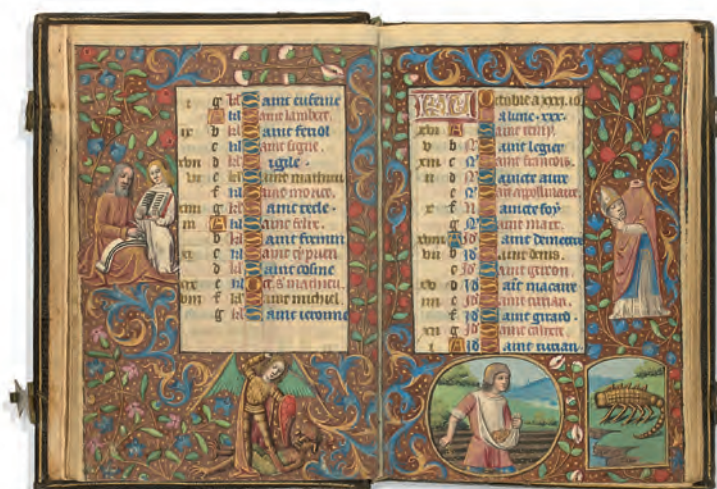 i g kl Saint eufeme
A kl Saint lambert.
ix b kl Saint feriol
c kl Saint
xvii d kl vigile.
vi e kl Saint mathieu
f kl Saint morice.
xiiii g kl Sainte tecle.
iii A kl Saint felix.
b kl Saint firmin
c kl Saint cyprien
d kl Saint cosme
xix e kl Oct. s. mathieu.
viii f kl Saint michiel.
g kl Saint ieromme
KL Octobre a xxxi. io
a lune. xxx.
xvi A Saint remy.
v b N Saint legier
xiii c N Saint francois.
ii d N Saincte aure
e N Saint appollinaire.
x f N Saincte foy
g N Saint marc.
xviii A Id Saint demetre
vii b Id Saint denis.
c Id Saint gereon
xv d Id Saint macaire
iiii e Id Saint
f Id Saint girard.
xii g Id Saint calixte
i A Id Saint